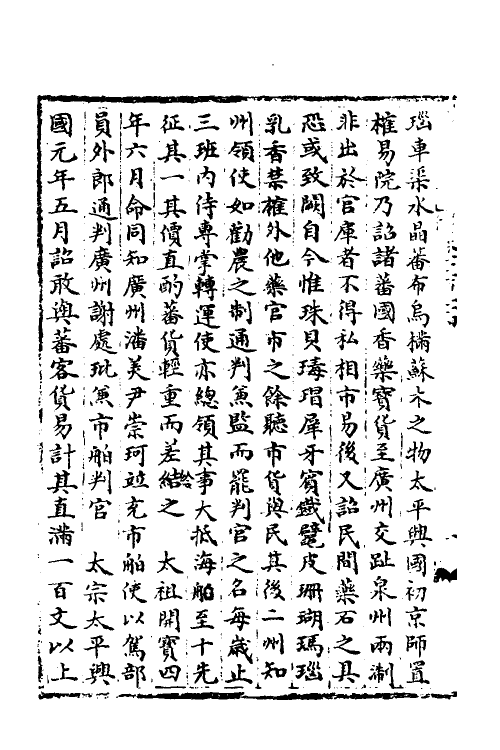 瑙車渠水晶蕃布烏樠蘇木之物太平興國初京師置
榷易院乃詔諸蕃國香藥寶貨至廣州交趾泉州兩浙
非出於官庫者不得私相市易後又詔民間藥石之具
恐或致闕自今惟珠貝瑇瑁犀牙賓鐵鼊皮珊瑚瑪瑙
乳香禁榷外他藥官市之餘聽市貨與民其後二州知
州領使如勸農之制通判兼監而罷判官之名每歲止
三班内侍專掌轉運使亦總領其事大抵海舶至十先
征其一其價直酌蕃貨輕重而差給之　太祖開寶四
年六月命同知廣州潘美尹崇珂竝充市舶使以駕部
員外郎通判廣州謝處玭兼市舶判官　太宗太平興
國元年五月詔敢與蕃客貨易計其直滿一百文以上